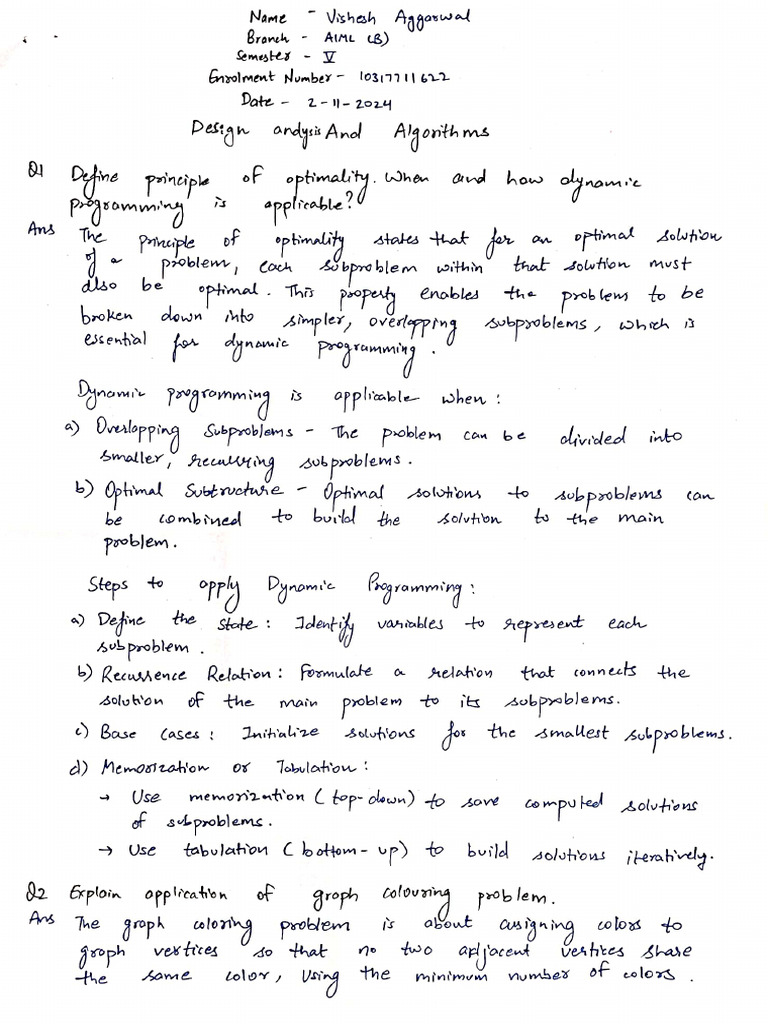 Name - Vishesh Aggarwal
Branch - AIML (B)
Semester - V
Enrolment Number - 10317711622
Date - 2-11-2024
Design andysis And Algorithms
Q1 Define principle of optimality. When and how dynamic
programming is applicable?
Ans The principle of optimality states that for an optimal solution
of a problem, each subproblem within that solution must
also be optimal. This property enables the problem to be
broken down into simpler, overlapping subproblems, which is
essential for dynamic programming.
Dynamic programming is applicable when :
a) Overlapping Subproblems - The problem can be divided into
smaller, recurring subproblems.
b) Optimal Subtructure - Optimal solutions to subproblems can
be combined to build the solution to the main
problem.
Steps to apply Dynamic Programming :
a) Define the state : Identify variables to represent each
subproblem.
b) Recurrence Relation : Formulate a relation that connects the
solution of the main problem to its subproblems.
c) Base Cases : Initialize solutions for the smallest subproblems.
d) Memorization or Tabulation :
→ Use memorization (top-down) to save computed solutions
of subproblems.
→ Use tabulation (bottom-up) to build solutions iteratively.
Q2 Explain application of graph colouring problem.
Ans The graph coloring problem is about assigning colors to
graph vertices so that no two adjacent vertices share
the same color, using the minimum number of colors.